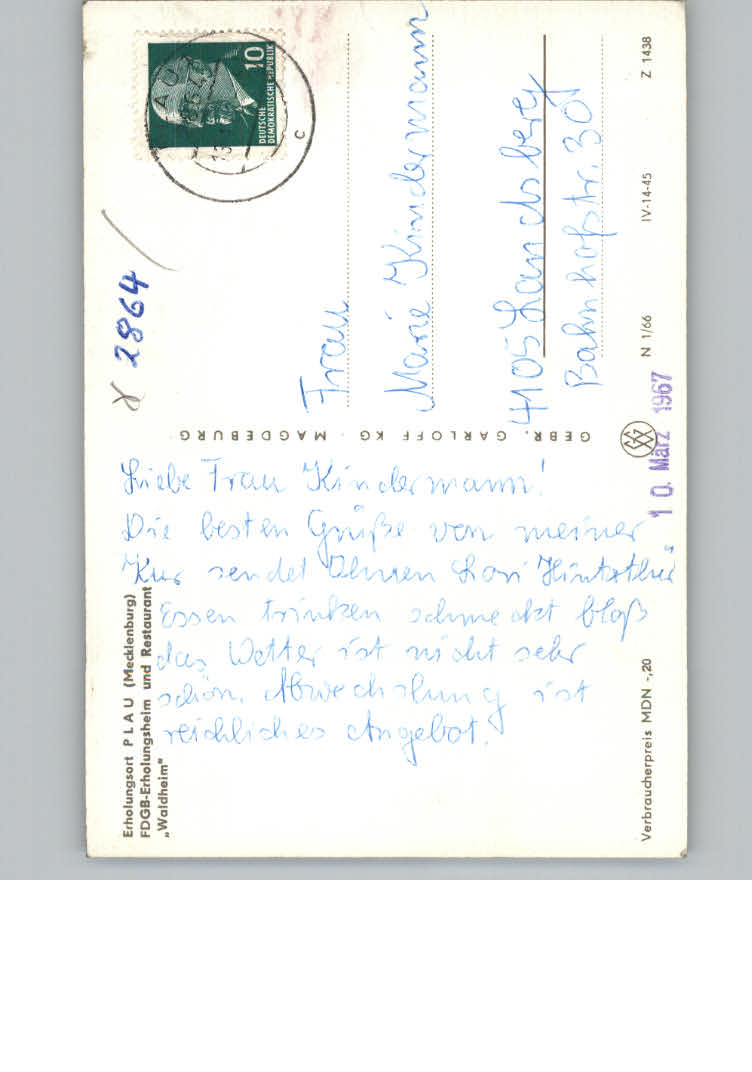 Liebe Frau Kindermann!
Die besten Grüße von meiner
Kur sendet Ihnen
Essen trinken schmeckt bloß
das Wetter ist nicht sehr
schön. Abwechslung ist
reichliches Angebot.
Frau
Marie Kindermann
4105 Landsberg
Bahnhofstr. 30
10
DEUTSCHE
DEMOKRATISCHE REPUBLIK
c
2864
GEBR. GARLOFF KG · MAGDEBURG
10. März 1967
Erholungsort PLAU (Mecklenburg)
FDGB-Erholungsheim und Restaurant
„Waldheim"
Verbraucherpreis MDN -,20
N 1/66
IV-14-45
Z 1438